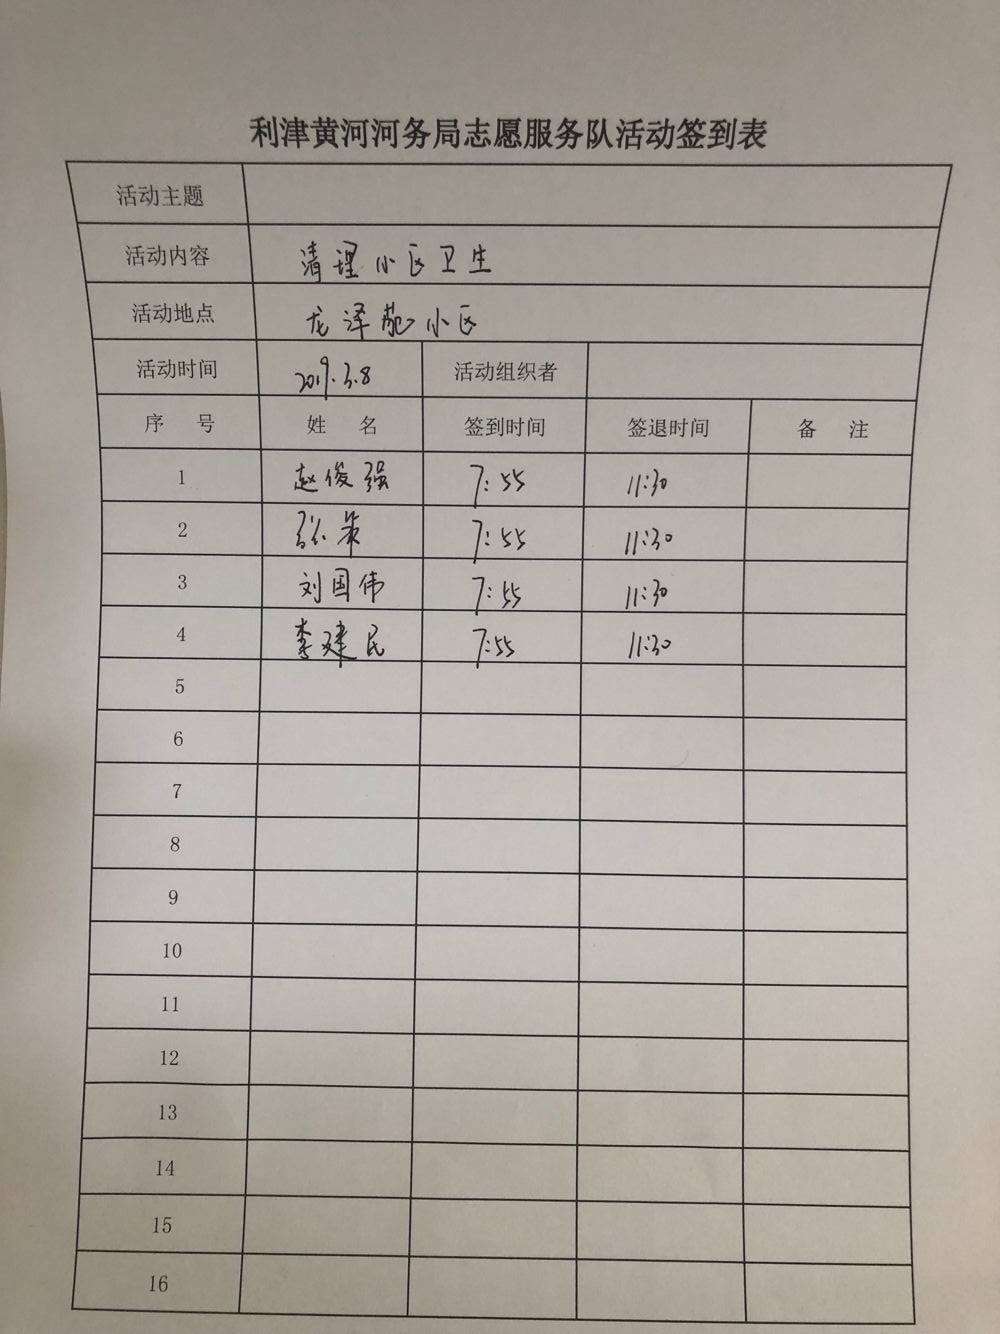 利津黄河河务局志愿服务队活动签到表
活动主题
活动内容 清理小区卫生
活动地点 龙泽苑小区
活动时间 2019.3.8 活动组织者
序 号 姓 名 签到时间 签退时间 备 注
1 赵俊强 7:55 11:30
2 张 7:55 11:30
3 刘国伟 7:55 11:30
4 李建民 7:55 11:30
5
6
7
8
9
10
11
12
13
14
15
16